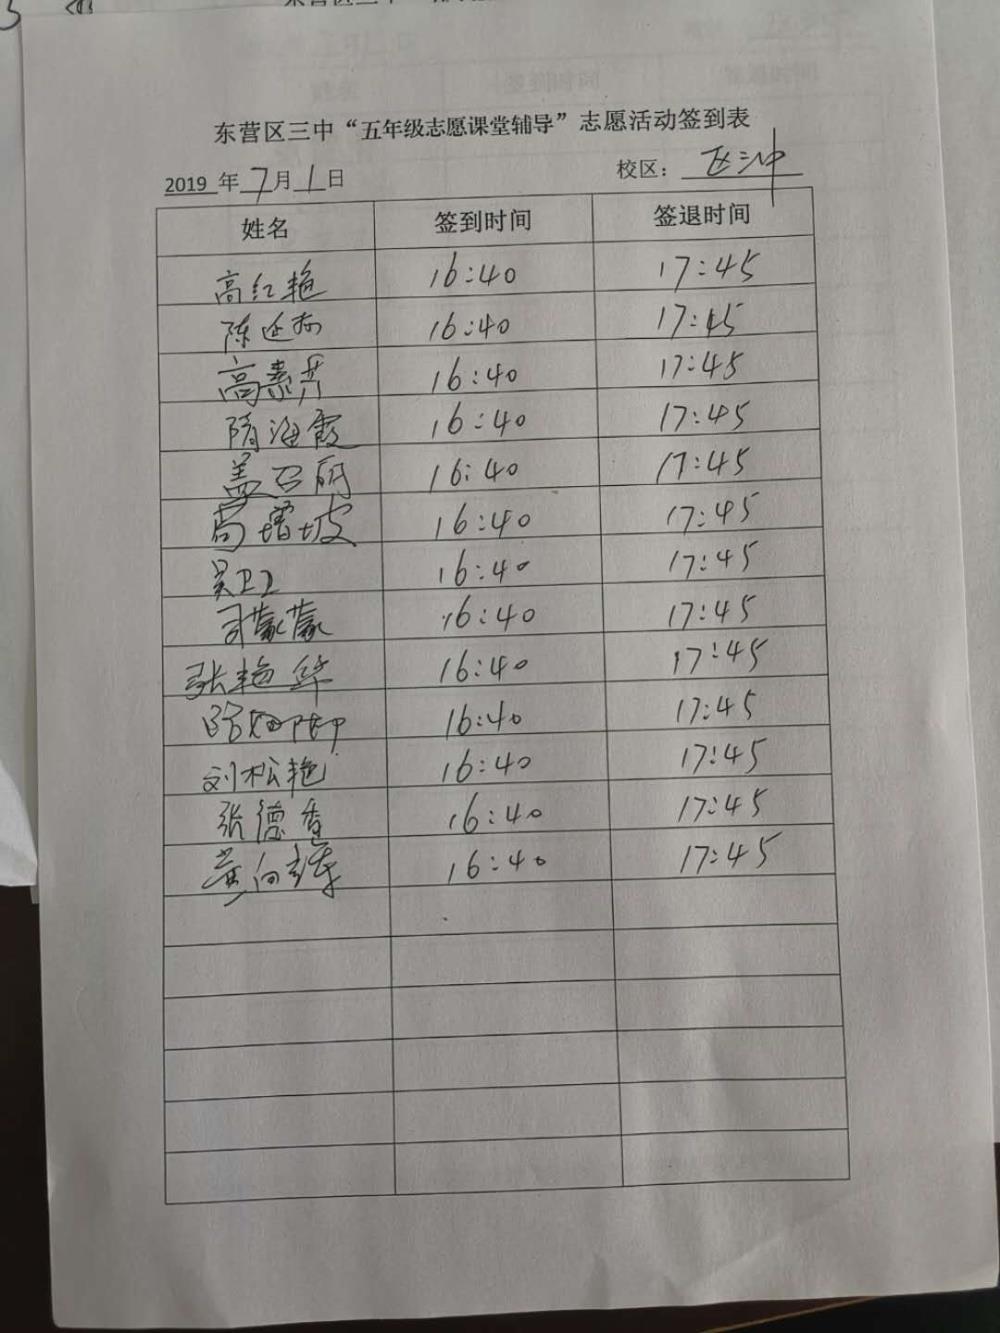 东营区三中“五年级志愿课堂辅导”志愿活动签到表
2019 年 7 月 1 日 校区： 区三中
姓名 签到时间 签退时间
高红艳 16:40 17:45
陈延 16:40 17:45
高素芹 16:40 17:45
隋海霞 16:40 17:45
盖召丽 16:40 17:45
高增坡 16:40 17:45
吴卫卫 16:40 17:45
司蒙蒙 16:40 17:45
张艳华 16:40 17:45
16:40 17:45
刘松艳 16:40 17:45
张德香 16:40 17:45
黄向 16:40 17:45